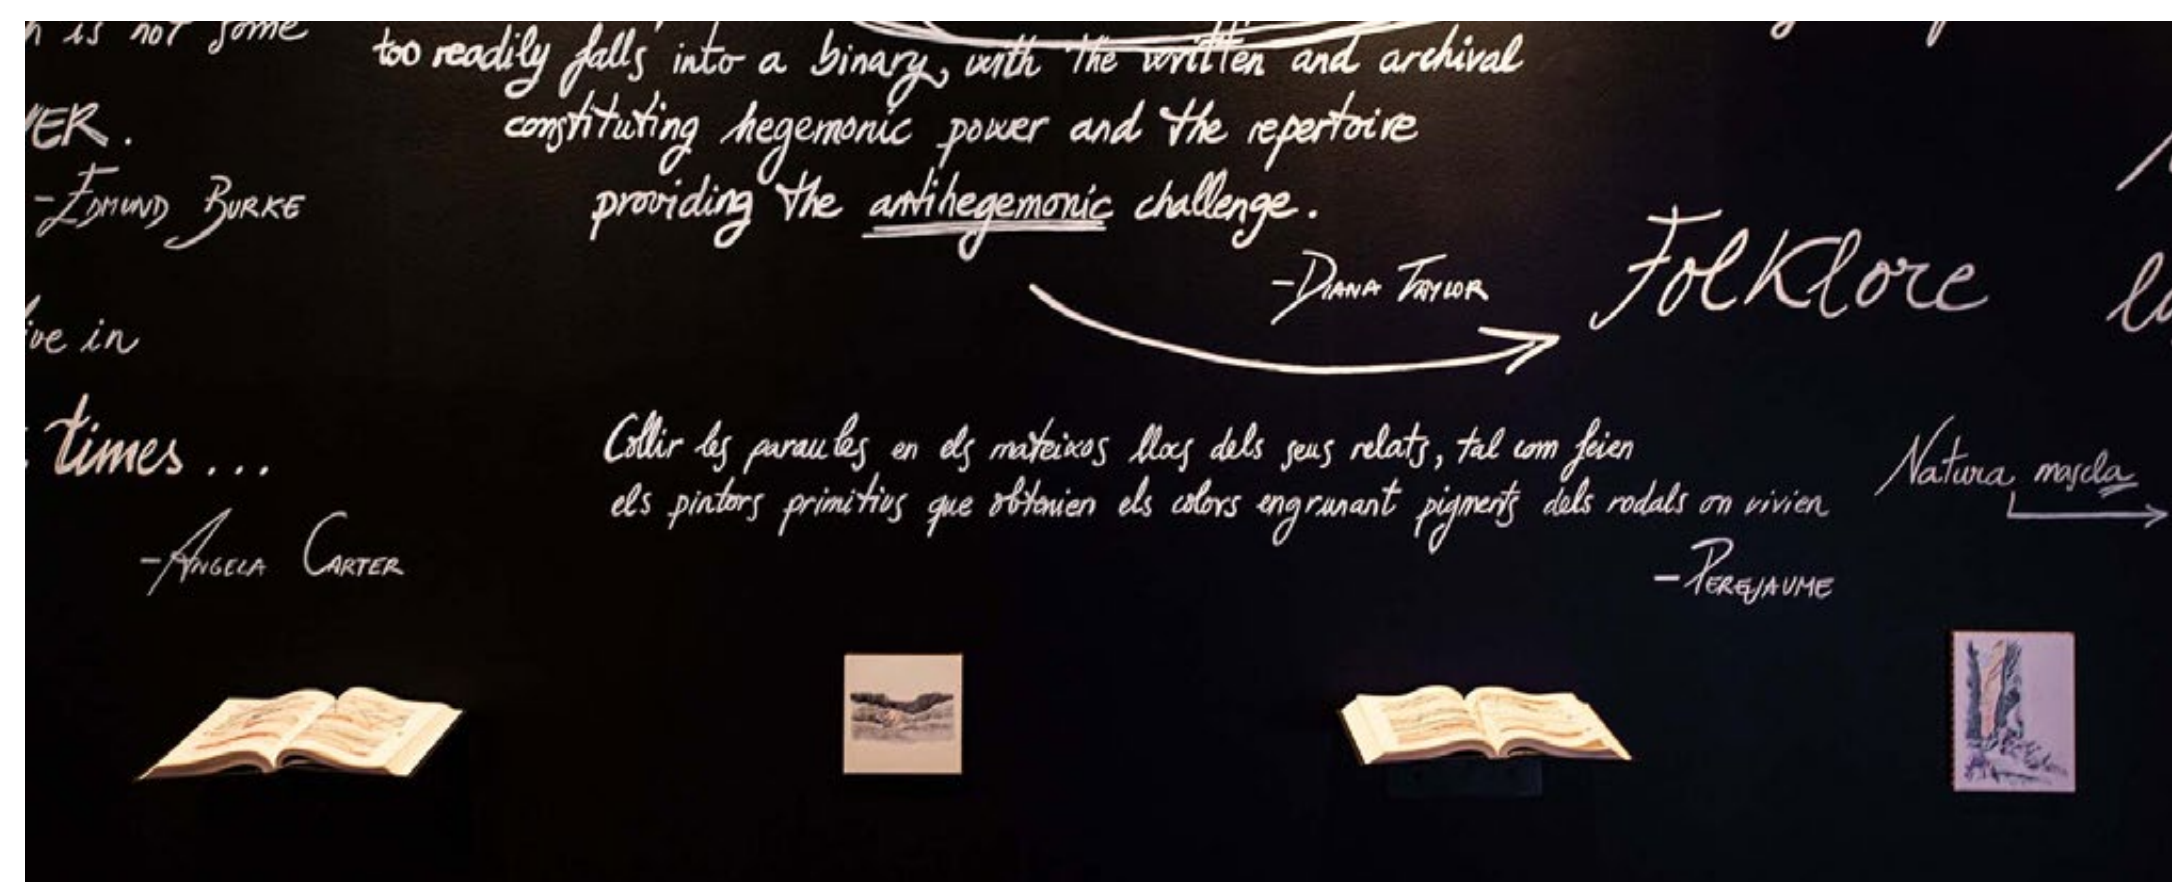 is not some
VER.
-EDMUND BURKE
ive in
times...
-ANGELA CARTER
too readily falls into a binary, with the written and archival
constituting hegemonic power and the repertoire
providing the antihegemonic challenge.
-DIANA TAYLOR
Folklore
Collir les paraules en els mateixos llocs dels seus relats, tal com feien
els pintors primitius que obtenien els colors engrunant pigments dels rodals on vivien
-PEREJAUME
Natura mascla